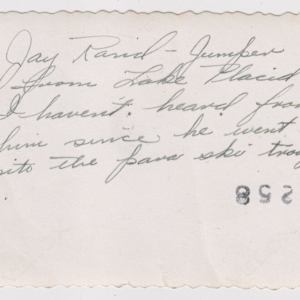 Jay Rand - Jumper
from Lake Placid
I havent heard from
him since he went
into the para ski troops
258